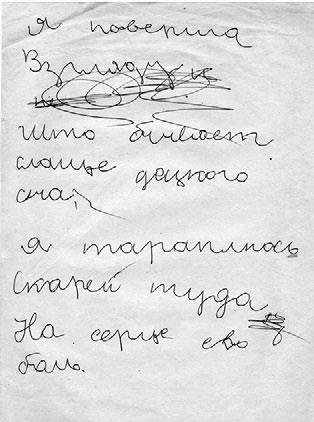 я поверила
Взгляду и
Што бывает
слаще децкого
сна,
я тараплюсь
Скарей туда
На серце ево
баль